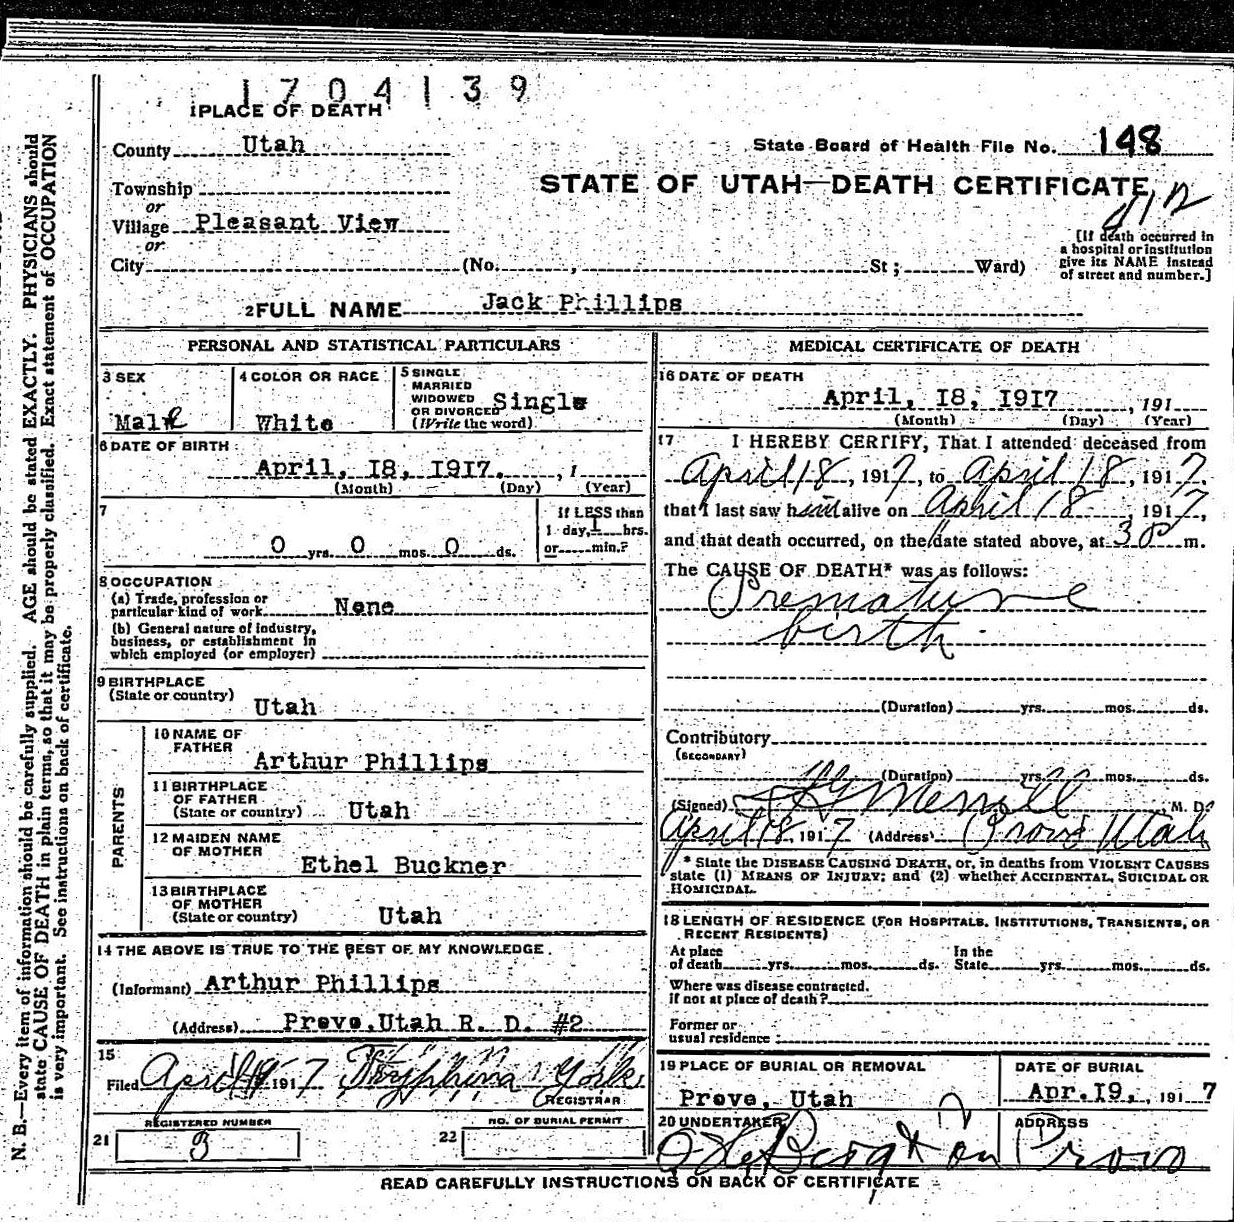 1704139
1 PLACE OF DEATH
County Utah
State Board of Health File No. 148
Township
STATE OF UTAH—DEATH CERTIFICATE
or
Village Pleasant View
or
City (No. , St ; Ward)
[If death occurred in
a hospital or institution
give its NAME instead
of street and number.]
2 FULL NAME Jack Phillips
PERSONAL AND STATISTICAL PARTICULARS
3 SEX
Male
4 COLOR OR RACE
White
5 SINGLE
MARRIED
WIDOWED
OR DIVORCED Single
(Write the word)
6 DATE OF BIRTH
April, I8, I9I7. , 1
(Month) (Day) (Year)
7
0 yrs. 0 mos. 0 ds.
If LESS than
1 day, 1 hrs.
or min.?
8 OCCUPATION
(a) Trade, profession or
particular kind of work None
(b) General nature of industry,
business, or establishment in
which employed (or employer)
9 BIRTHPLACE
(State or country) Utah
PARENTS
10 NAME OF
FATHER
Arthur Phillips
11 BIRTHPLACE
OF FATHER
(State or country) Utah
12 MAIDEN NAME
OF MOTHER
Ethel Buckner
13 BIRTHPLACE
OF MOTHER
(State or country) Utah
14 THE ABOVE IS TRUE TO THE BEST OF MY KNOWLEDGE.
(Informant) Arthur Phillips
(Address) Provo, Utah R. D. #2
15
Filed April 19 1917
REGISTRAR
REGISTERED NUMBER
21 3
NO. OF BURIAL PERMIT
22
MEDICAL CERTIFICATE OF DEATH
16 DATE OF DEATH
April, I8, I9I7 , 191
(Month) (Day) (Year)
17 I HEREBY CERTIFY, That I attended deceased from
April 18, 1917, to April 18, 1917,
that I last saw him alive on April 18, 1917,
and that death occurred, on the date stated above, at 3 P m.
The CAUSE OF DEATH* was as follows:
Premature
birth
(Duration) yrs. mos. ds.
Contributory
(SECONDARY)
(Duration) yrs. mos. ds.
(Signed) Merrill , M. D.
April 18 1917 (Address) Provo Utah
* State the DISEASE CAUSING DEATH, or, in deaths from VIOLENT CAUSES
state (1) MEANS OF INJURY; and (2) whether ACCIDENTAL, SUICIDAL OR
HOMICIDAL.
18 LENGTH OF RESIDENCE (FOR HOSPITALS, INSTITUTIONS, TRANSIENTS, OR
RECENT RESIDENTS)
At place
of death yrs. mos. ds.
In the
State yrs. mos. ds.
Where was disease contracted.
if not at place of death?
Former or
usual residence :
19 PLACE OF BURIAL OR REMOVAL
Provo, Utah
DATE OF BURIAL
Apr. I9, , 1917
20 UNDERTAKER
ADDRESS
Provo
READ CAREFULLY INSTRUCTIONS ON BACK OF CERTIFICATE
N. B.—Every item of information should be carefully supplied. AGE should be stated EXACTLY. PHYSICIANS should
state CAUSE OF DEATH in plain terms, so that it may be properly classified. Exact statement of OCCUPATION
is very important. See instructions on back of certificate.